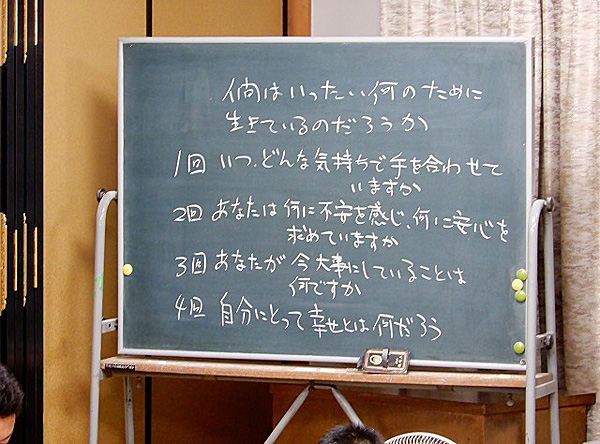 僕はいったい何のために
生きているのだろうか
1回 いつ、どんな気持ちで手を合わせて
いますか
2回 あなたは何に不安を感じ、何に安心を
求めていますか
3回 あなたが今大事にしていることは
何ですか
4回 自分にとって幸せとは何だろう